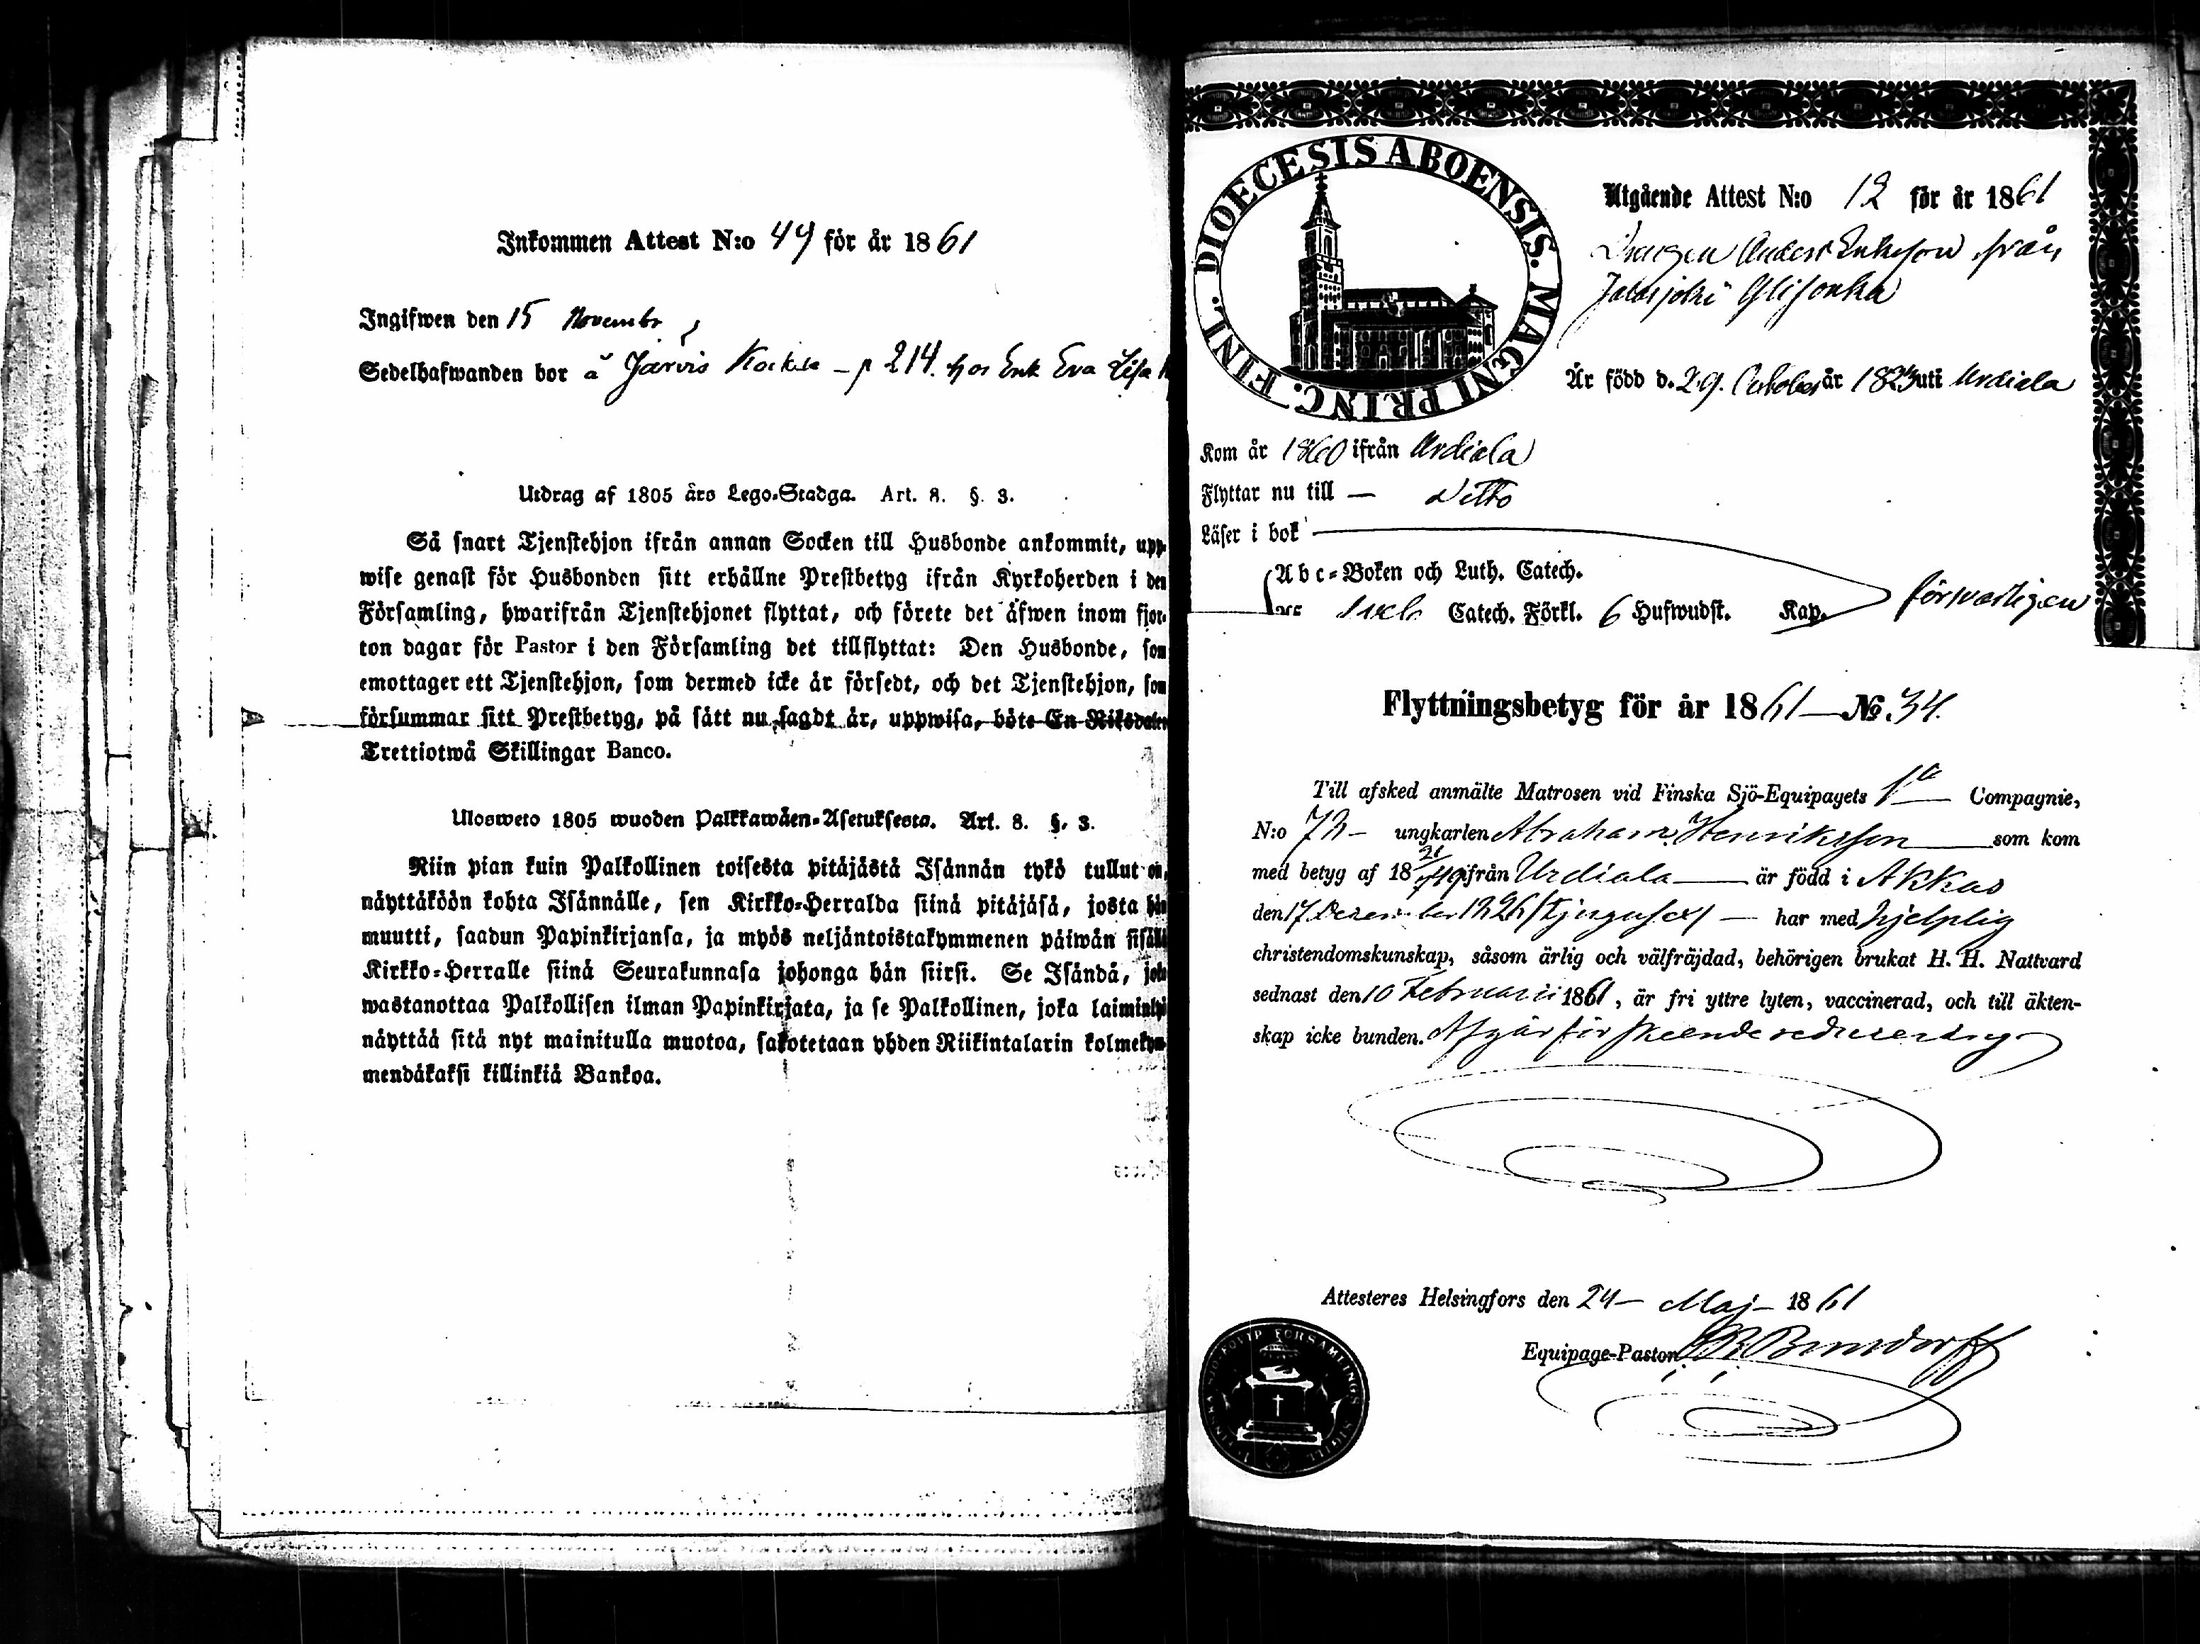 Inkommen Attest N:o 49 för år 1861
Ingifwen den 15 Novembr
Sedelhafwanden bor å Järvis Kockila – p 214. hos Enk Eva Lisa
Utdrag af 1805 års Lego-Stadga. Art. 8. §. 3.
Så snart Tjenstehjon ifrån annan Socken till Husbonde ankommit, upp-
wise genast för Husbonden sitt erhållne Prestbetyg ifrån Kyrkoherden i den
Församling, hwarifrån Tjenstehjonet flyttat, och förete det äfwen inom fjor-
ton dagar för Pastor i den Församling det tillflyttat: Den Husbonde, som
emottager ett Tjenstehjon, som dermed icke är försedt, och det Tjenstehjon, som
försummar sitt Prestbetyg, på sätt nu sagdt är, uppwisa, böte En Riksdaler
Trettiotwå Skillingar Banco.
Ulosweto 1805 wuoden Palkkawäen-Asetuksesta. Art. 8. §. 3.
Niin pian kuin Palkollinen toisesta pitäjästä Isännän tykö tullut on,
näyttäköön kohta Isännälle, sen Kirkko-Herralda siinä pitäjäsä, josta hän
muutti, saadun Papinkirjansa, ja myös neljäntoistakymmenen päiwän sisällä
Kirkko-Herralle siinä Seurakunnasa johonga hän siirsi. Se Isändä, joka
wastanottaa Palkollisen ilman Papinkirjata, ja se Palkollinen, joka laiminlyö
näyttää sitä nyt mainitulla muotoa, sakotetaan yhden Riikintalarin kolmekym-
mendäkaksi killinkiä Bankoa.
DIOECESIS ABOENSIS. MAGNI PRINC. FINL.
Utgående Attest N:o 12 för år 1861
Drängen Anders Eriksson från
Är född d. 29. October år 1823 uti Urdiala
Kom år 1860 ifrån Urdiala
Flyttar nu till — Ditto
Läser i bok
Abc-Boken och Luth. Catech.
Catech. Förkl. 6 Hufwudst. Kap. försvarligen
Flyttningsbetyg för år 1861 — No. 34.
Till afsked anmälte Matrosen vid Finska Sjö-Equipagets 1a Compagnie,
N:o 72 – ungkarlen Abraham Henriksson som kom
med betyg af 18 ifrån Urdiala är född i Akkas
den 17 December 1826 /tjugusex/ — har med hjelplig
christendomskunskap, såsom ärlig och välfräjdad, behörigen brukat H. H. Nattvard
sednast den 10 Februarii 1861, är fri yttre lyten, vaccinerad, och till äkten-
skap icke bunden. Afgår för skeende reducering.
Attesteres Helsingfors den 24 – Maj – 1861
Equipage-Pastor